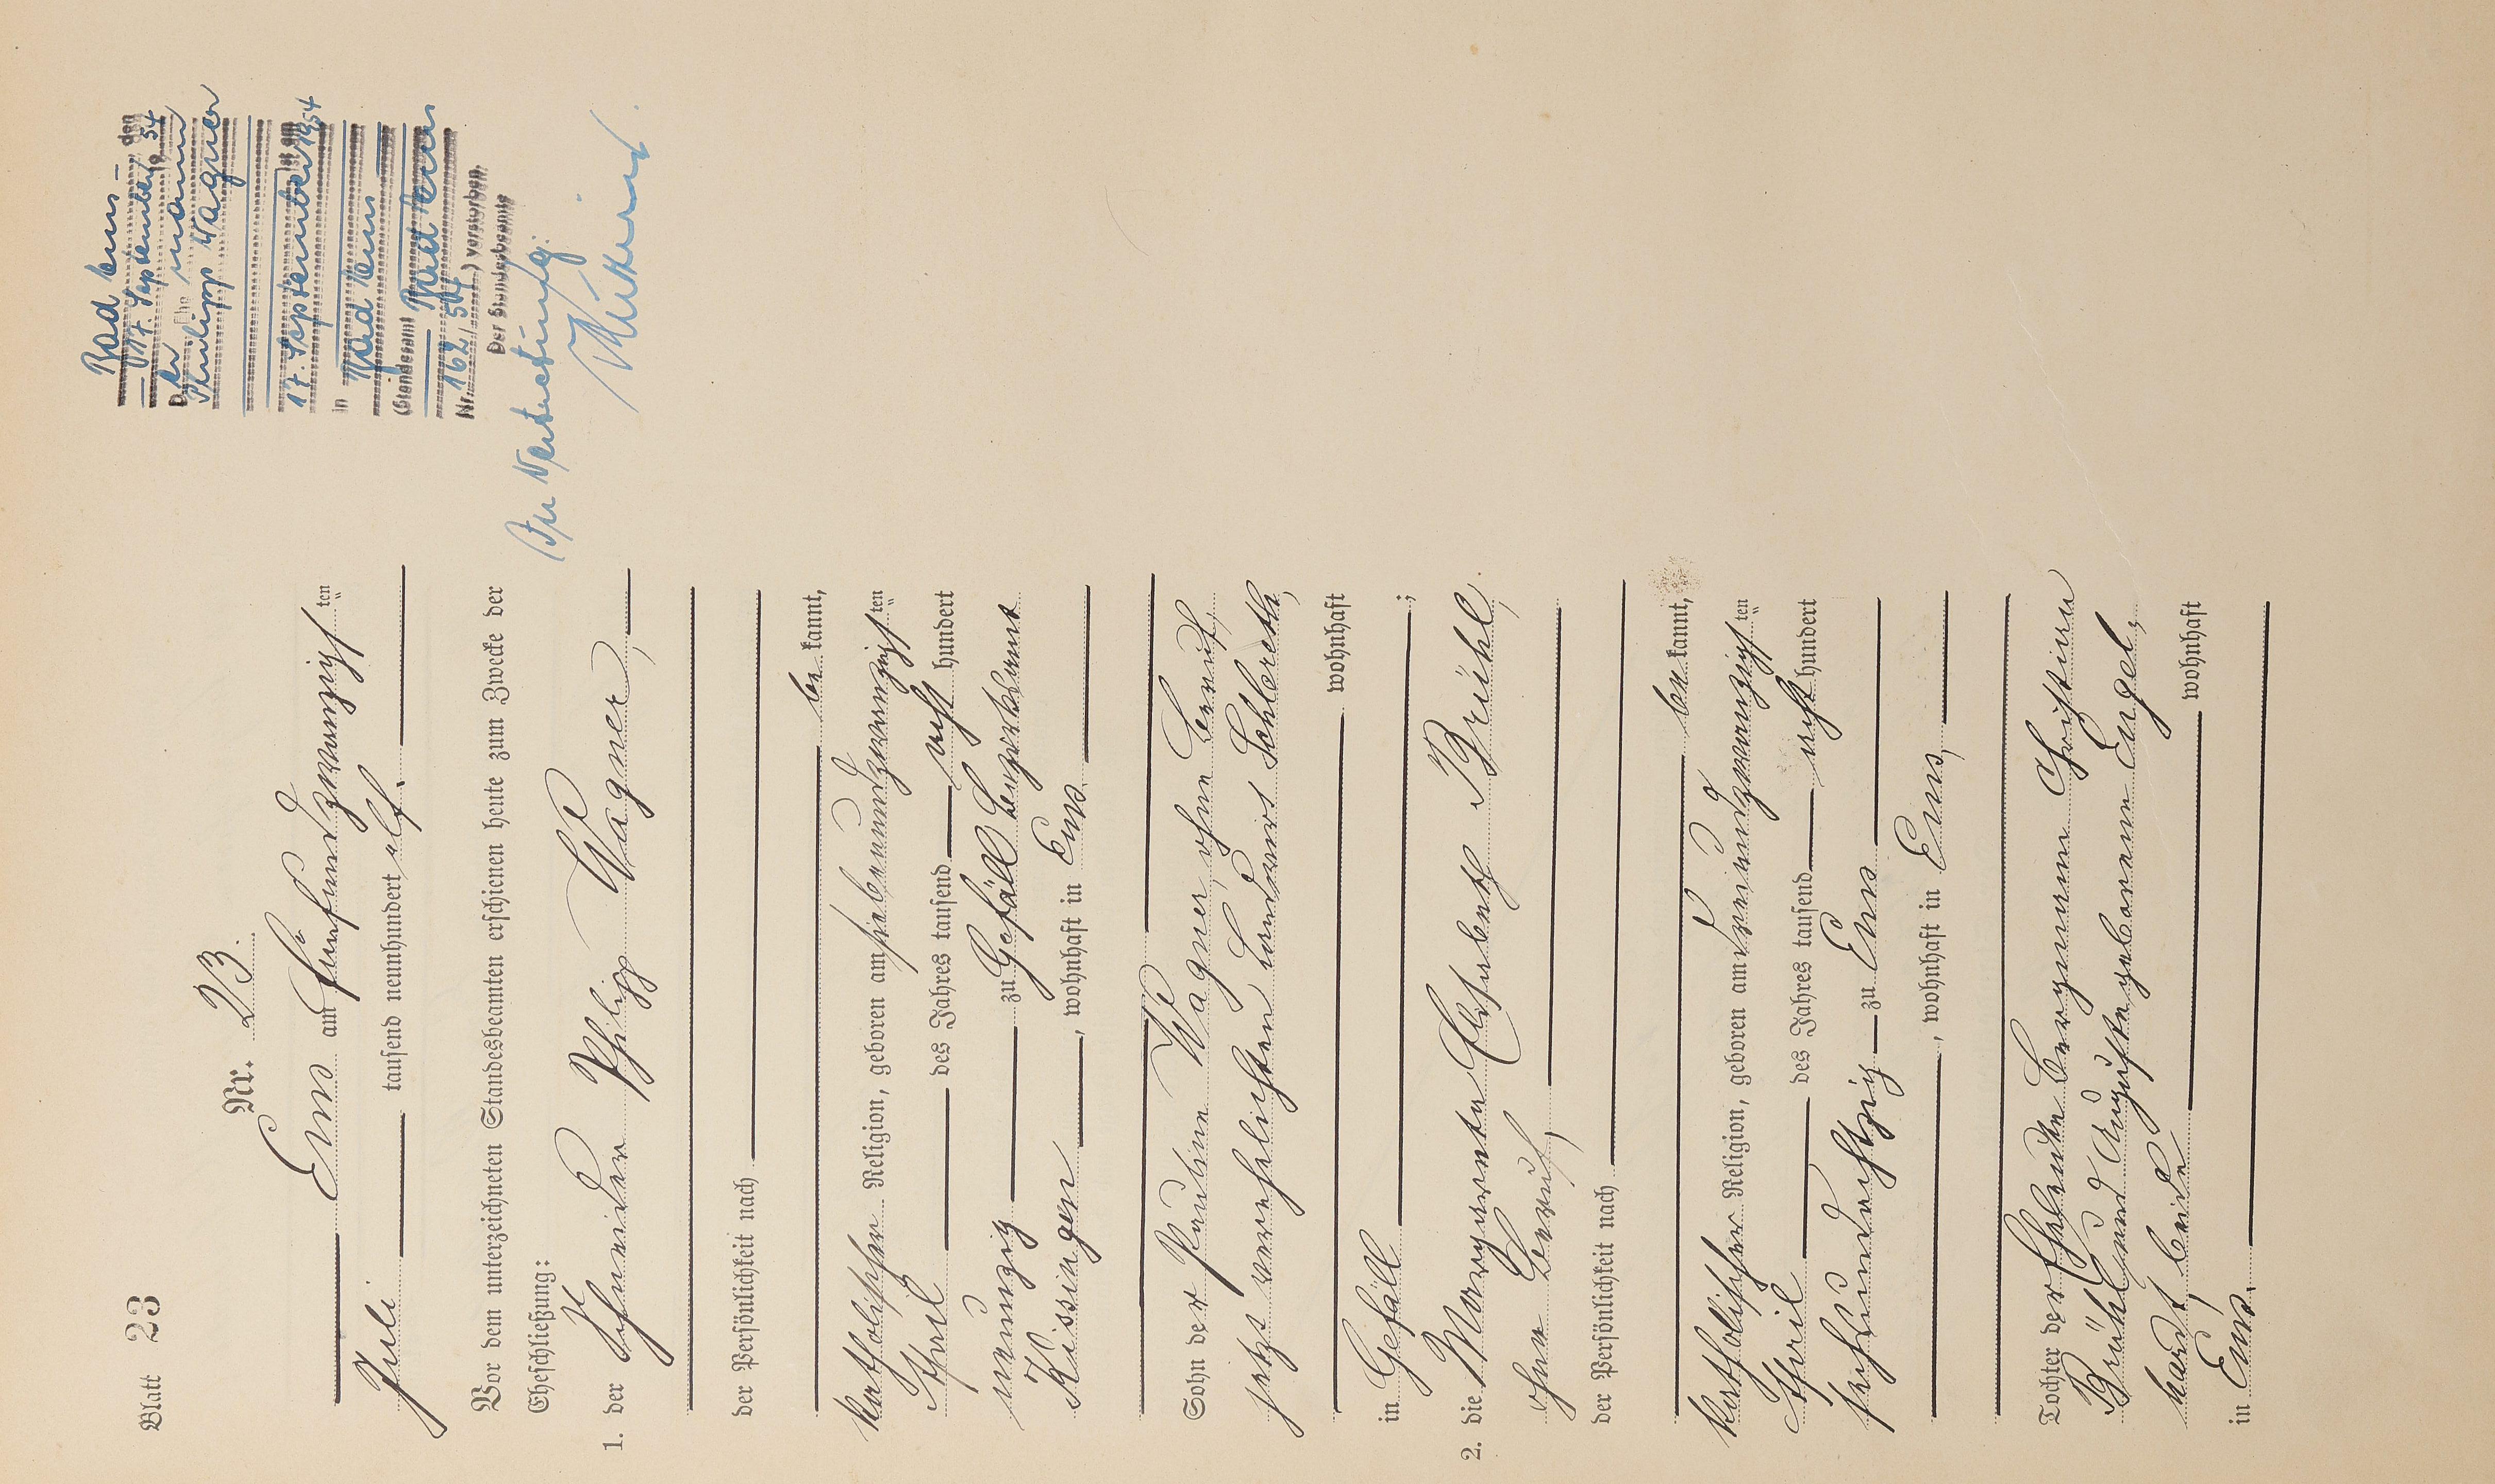 Blatt 23
Nr. 23.
Ems am fünfundzwanzigsten
Juli tausend neunhundert elf.
Vor dem unterzeichneten Standesbeamten erschienen heute zum Zwecke der
Eheschließung:
1. der Schneider Philipp Wagner,
der Persönlichkeit nach
bekannt,
katholischer Religion, geboren am siebenundzwanzigsten
April des Jahres tausend acht hundert
neunzig zu Gefäll Bezirksamt
Kissingen, wohnhaft in Ems
Sohn der Pauline Wagner, ohne Beruf,
jetzt verehelichten Landwirt Schlereth,
wohnhaft
in Gefäll;
2. die Margareta Elisabeth Brühl,
ohne Beruf,
der Persönlichkeit nach
bekannt,
katholischer Religion, geboren am dreiundzwanzigsten
April des Jahres tausend acht hundert
sechsundachtzig zu Ems
, wohnhaft in Ems,
Tochter der Eheleute Bergmann Christian
Brühl und Auguste geborene Engel,
beide wohnhaft
in Ems.
Bad Ems, den
17. September 1954
Der Ehemann
Philipp Wagner
ist am
17. September 1954
in
Bad Ems
(Standesamt Bad Ems
Nr. 162/54) verstorben
Der Standesbeamte
In Vertretung: